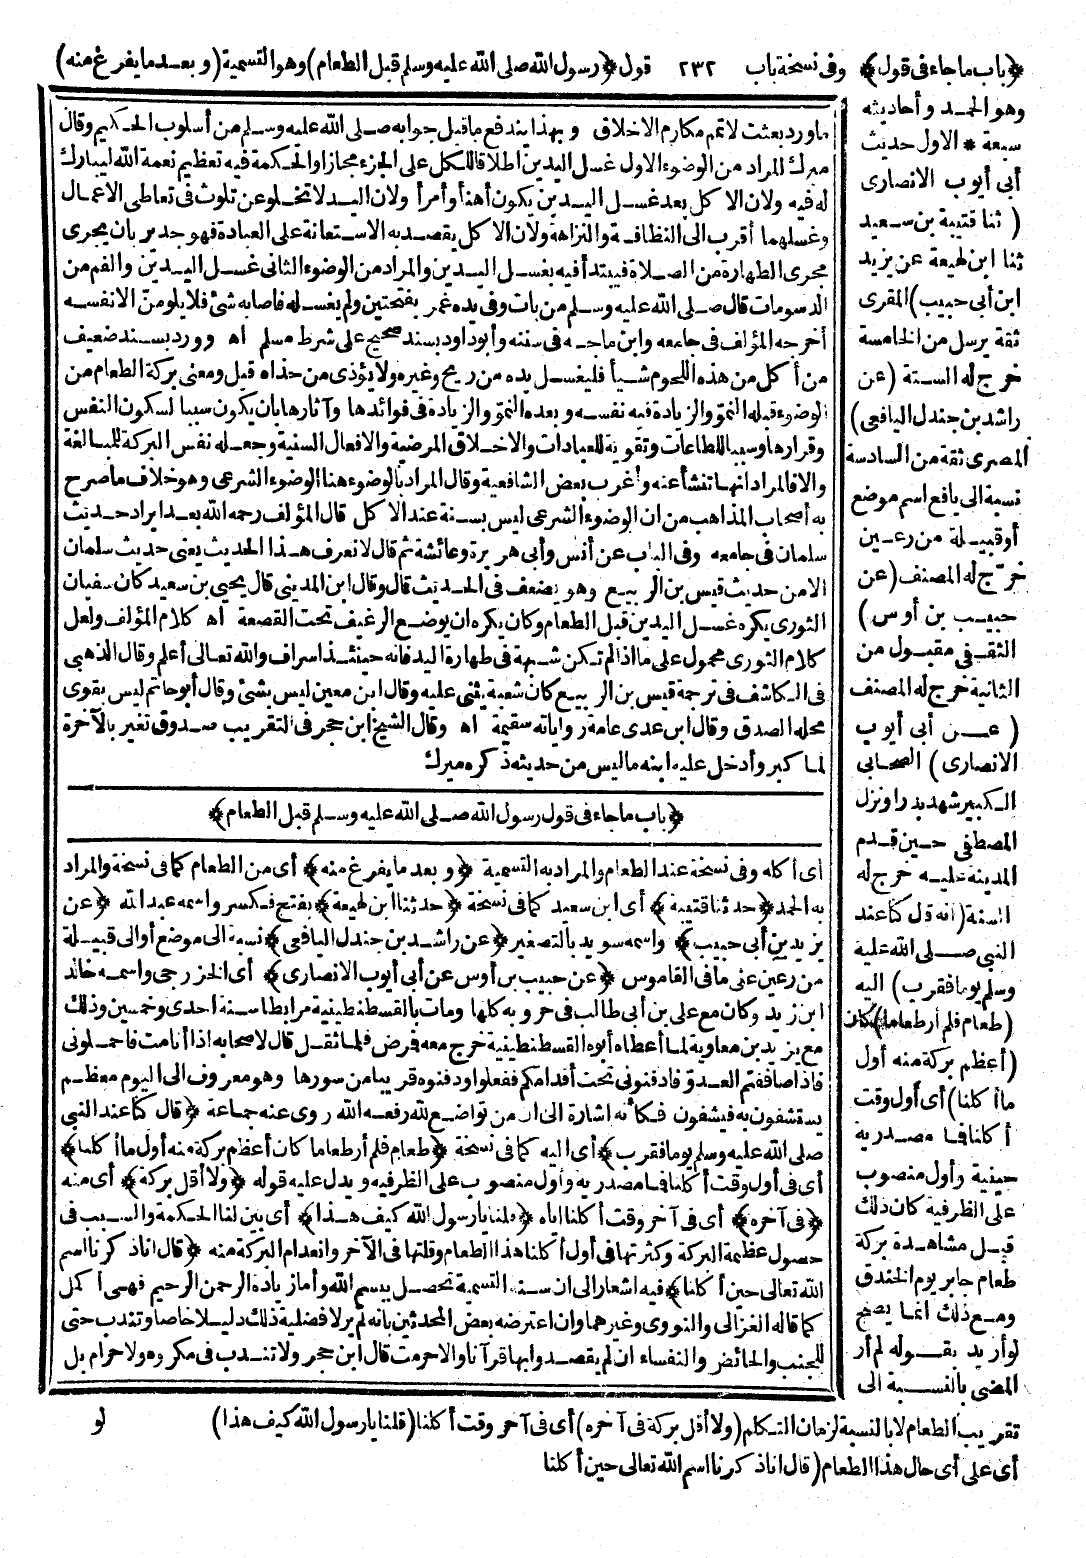 ﴿باب ماجاء فى قول﴾ وفى نسخة باب ٢٣٢ قول ﴿رسول الله صلى الله عليه وسلم قبل الطعام) وهو التسمية (وبعد ما يفرغ منه)
ماورد بعثت لاتمم مكارم الاخلاق وبهذا يندفع ما قيل جوابه صلى الله عليه وسلم من أسلوب الحكيم وقال
ميرك المراد من الوضوء الاول غسل اليدين اطلاقا للكل على الجزء مجازا والحكمة فيه تعظيم نعمة الله ليبارك
له فيه ولان الاكل بعد غسل اليدين يكون أهنأ وأمرأ ولان اليد لا تخلو عن تلوث فى تعاطى الاعمال
وغسلهما أقرب الى النظافة والنزاهة ولان الاكل يقصد به الاستعانة على العبادة فهو جدير بان يجرى
مجرى الطهارة من الصلاة فيبتدأ فيه بغسل اليدين والمراد من الوضوء الثانى غسل اليدين والفم من
الدسومات قال صلى الله عليه وسلم من بات وفى يده غمر بفتحتين ولم يغسله فاصابه شئ فلا يلومن الا نفسه
أخرجه المؤلف فى جامعه وابن ماجه فى سننه وأبو داود بسند صحيح على شرط مسلم اه وورد بسند ضعيف
من أكل من هذه اللحوم شيأ فليغسل يده من ريح وغيره ولا يؤذى من حذاه قيل ومعنى بركة الطعام من
الوضوء قبله النمو والزيادة فيه نفسه وبعده النمو والزيادة فى فوائدها وآثارها بان يكون سببا لسكون النفس
وقرارها وسببا للطاعات وتقوية للعبادات والاخلاق المرضية والافعال السنية وجعله نفس البركة للمبالغة
والا فالمراد انها تنشأ عنه وأغرب بعض الشافعية وقال المراد بالوضوء هنا الوضوء الشرعى وهو خلاف ما صرح
به أصحاب المذاهب من ان الوضوء الشرعى ليس بسنة عند الاكل قال المؤلف رحمه الله بعد ايراد حديث
سلمان فى جامعه وفى الباب عن أنس وأبى هريرة وعائشة ثم قال لا نعرف هذا الحديث يعنى حديث سلمان
الامن حديث قيس بن الربيع وهو يضعف فى الحديث قال وقال ابن المدينى قال يحيى بن سعيد كان سفيان
الثورى يكره غسل اليدين قبل الطعام وكان يكره ان يوضع الرغيف تحت القصعة اه كلام المؤلف ولعل
كلام الثورى محمول على ما اذا لم تكن شبهة فى طهارة اليد فانه حينئذ اسراف والله تعالى أعلم وقال الذهبى
فى الكاشف فى ترجمة قيس بن الربيع كان شعبة يثنى عليه وقال ابن معين ليس بشئ وقال أبو حاتم ليس بقوى
محله الصدق وقال ابن عدى عامة رواياته سقيمة اه وقال الشيخ ابن حجر فى التقريب صدوق تغير بالآخرة
لما كبر وأدخل عليه ابنه ما ليس من حديثه ذكره ميرك
﴿باب ماجاء فى قول رسول الله صلى الله عليه وسلم قبل الطعام﴾
أى أكله وفى نسخة عند الطعام والمراد به التسمية ﴿وبعد ما يفرغ منه﴾ أى من الطعام كما فى نسخة والمراد
به الحمد ﴿حدثنا قتيبة﴾ أى ابن سعيد كما فى نسخة ﴿حدثنا ابن لهيعة﴾ بفتح فكسر واسمه عبد الله ﴿عن
يزيد بن أبى حبيب﴾ واسمه سويد بالتصغير ﴿عن راشد بن جندل اليافعى﴾ نسبة الى موضع أو الى قبيلة
من رعين على ما فى القاموس ﴿عن حبيب بن أوس عن أبى أيوب الانصارى﴾ أى الخزرجى واسمه خالد
ابن زيد وكان مع على بن أبى طالب فى حروبه كلها ومات بالقسطنطينية مرابطا سنة أحدى وخمسين وذلك
مع يزيد بن معاوية لما أعطاه أبوه القسطنطينية خرج معه فرض فلما ثقل قال لاصحابه اذا أنامت فاحملونى
فاذا صاففتم العدو فادفنونى تحت أقدامكم ففعلوا ودفنوه قريبا من سورها وهو معروف الى اليوم معظم
يستشفون به فيشفون فكأنه اشارة الى ان من تواضع لله رفعه الله روى عنه جماعة ﴿قال كنا عند النبى
صلى الله عليه وسلم يوما فقرب﴾ أى اليه كما فى نسخة ﴿طعام فلم أر طعاما كان أعظم بركة منه أول ما أكلنا﴾
أى فى أول وقت أكلنا فما مصدرية وأول منصوب على الظرفيه ويدل عليه قوله ﴿ولا أقل بركة﴾ أى منه
﴿فى آخره﴾ أى فى آخر وقت أكلنا اياه ﴿قلنا يا رسول الله كيف هذا﴾ أى بين لنا الحكمة والسبب فى
حصول عظمة البركة وكثرتها فى أول أكلنا هذا الطعام وقلتها فى الآخر وانعدام البركة منه ﴿قال انا ذكرنا اسم
الله تعالى حين أكلنا﴾ فيه اشعار الى ان سنة التسمية تحصل ببسم الله وأما زيادة الرحمن الرحيم فهى أكمل
كما قاله الغزالى والنووى وغيرهما وان اعترضه بعض المحدثين بانه لم ير لافضلية ذلك دليلا خاصا وتندب حتى
للجنب والحائض والنفساء ان لم يقصدوا بها قرآنا والا حرمت قال ابن حجر ولا تندب فى مكروه ولا حرام بل
وهو الحمد وأحاديثه
سبعة * الاول حديث
أبى أيوب الانصارى
(ثنا قتيبة بن سعيد
ثنا ابن لهيعة عن يزيد
ابن أبى حبيب) المقرى
ثقة يرسل من الخامسة
خرج له الستة (عن
راشد بن جندل اليافعى)
المصرى ثقة من السادسة
نسبة الى يافع اسم موضع
أو قبيلة من رعين
خرّج له المصنف (عن
حبيب بن أوس)
الثقفى مقبول من
الثانية خرج له المصنف
(عن أبى أيوب
الانصارى) الصحابى
الكبير شهد بدرا ونزل
المصطفى حين قدم
المدينة عليه خرج له
الستة (انه قال كنا عند
النبى صلى الله عليه
وسلم يوما فقرب) اليه
(طعام فلم أر طعاما) كان
(أعظم بركة منه أول
ما أكلنا) أى أول وقت
أكلنا فما مصدرية
حينية وأول منصوب
على الظرفية كان ذلك
قبل مشاهدة بركة
طعام جابر يوم الخندق
ومع ذلك انما يصح
لو أريد بقوله لم أر
المضى بالنسبة الى
تقريب الطعام لا بالنسبة لزمان التكلم (ولا أقل بركة فى آخره) أى فى آخر وقت أكلنا (قلنا يا رسول الله كيف هذا) لو
أى على أى حال هذا الطعام (قال انا ذكرنا اسم الله تعالى حين أكلنا